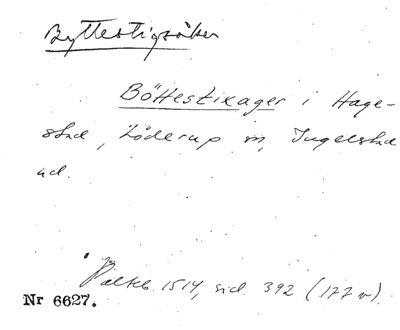 Byttestigsåker
Böttestixager i Hage-
stad, Löderup sn, Ingelstad
hd.
Palteb. 1514, sid. 392 (177 v)
Nr 6627.